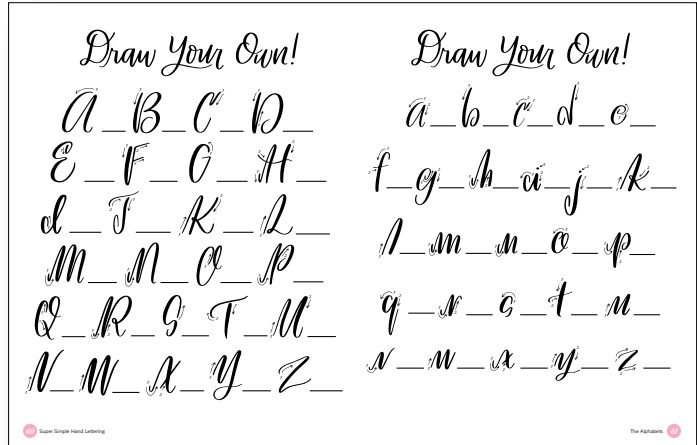 Draw Your Own!
A B C D
E F G H
I J K L
M N O P
Q R S T U
V W X Y Z
60 Super Simple Hand Lettering
Draw Your Own!
a b c d e
f g h i j k
l m n o p
q r s t u
v w x y z
The Alphabets 61